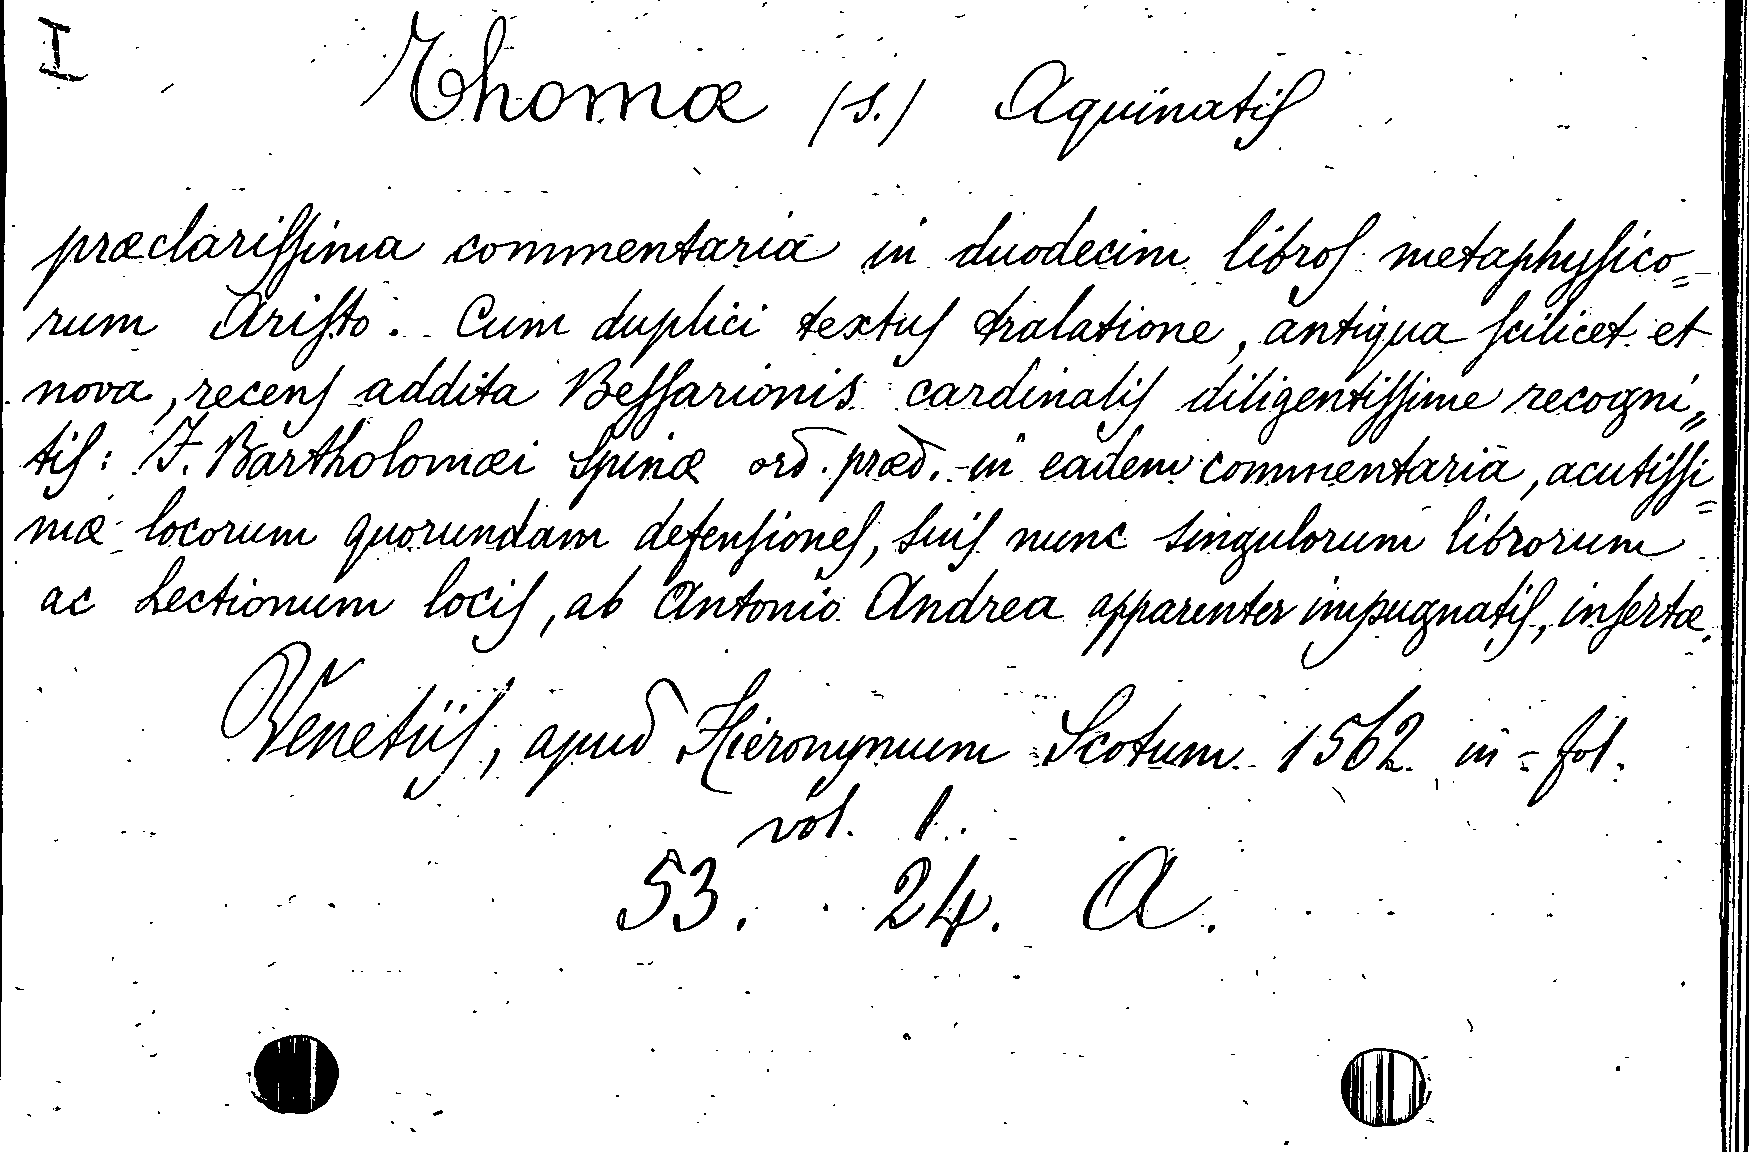 I
Thomæ (S.) Aquinatiſ
præclariſſima commentaria in duodecim libroſ metaphyſico=
rum Ariſto. Cum duplici textuſ tralatione, antiqua ſcilicet et
nova, recenſ addita Beſſarionis cardinaliſ diligentiſſime recogni„
tiſ: F. Bartholomæi Spinæ ord. præd. in eadem commentaria, acutiſſi=
mæ locorum quorundam defenſioneſ, suiſ nunc singulorum librorum
ac Lectionum lociſ, ab Antonio Andrea apparenter impugnatiſ, inſertæ.
Venetiiſ, apud Hieronymum Scotum 1562 in=fol.
vol. 1.
53. 24. A.